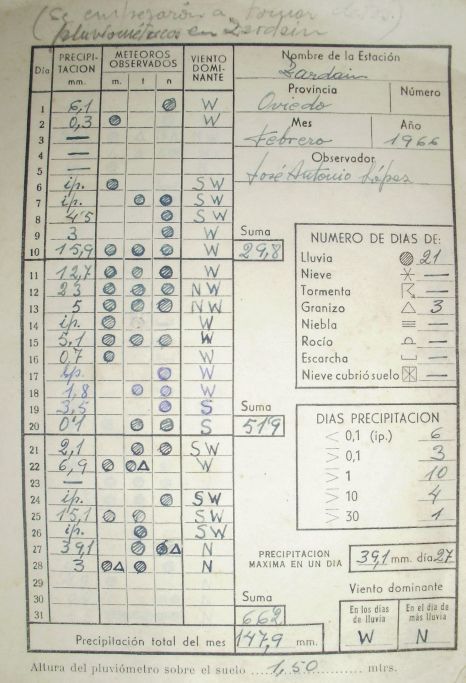 (Se empezarón a tomar datos
pluviométricos en Zardain)
Día PRECIPITACION mm. METEOROS OBSERVADOS m. t n VIENTO DOMINANTE
1 6,1 W
2 0,3 W
3 —
4 —
5 —
6 ip. SW
7 ip. SW
8 4'5 SW
9 3 W
10 15,9 W
11 12,7 W
12 23 NW
13 5 NW
14 ip. W
15 5,1 W
16 0,7 W
17 ip. W
18 1,8 W
19 3,5 S
20 0'1 S
21 2,1 SW
22 6,9 W
23 —
24 ip. SW
25 15,1 SW
26 ip. SW
27 39,1 N
28 3 N
29
30
31
Suma 29,8
Suma 51'9
Suma 66'2
Precipitación total del mes 147,9 mm.
Nombre de la Estación
Zardain
Provincia Número
Oviedo
Mes Año
Febrero 1966
Observador
José Antonio López
NUMERO DE DIAS DE:
Lluvia 21
Nieve —
Tormenta —
Granizo 3
Niebla —
Rocío —
Escarcha —
Nieve cubrió suelo —
DIAS PRECIPITACION
< 0,1 (ip.) 6
≥ 0,1 3
≥ 1 10
≥ 10 4
≥ 30 1
PRECIPITACION MAXIMA EN UN DIA 39,1 mm. día 27
Viento dominante
En los días de lluvia En el día de más lluvia
W N
Altura del pluviómetro sobre el suelo 1,50 mtrs.